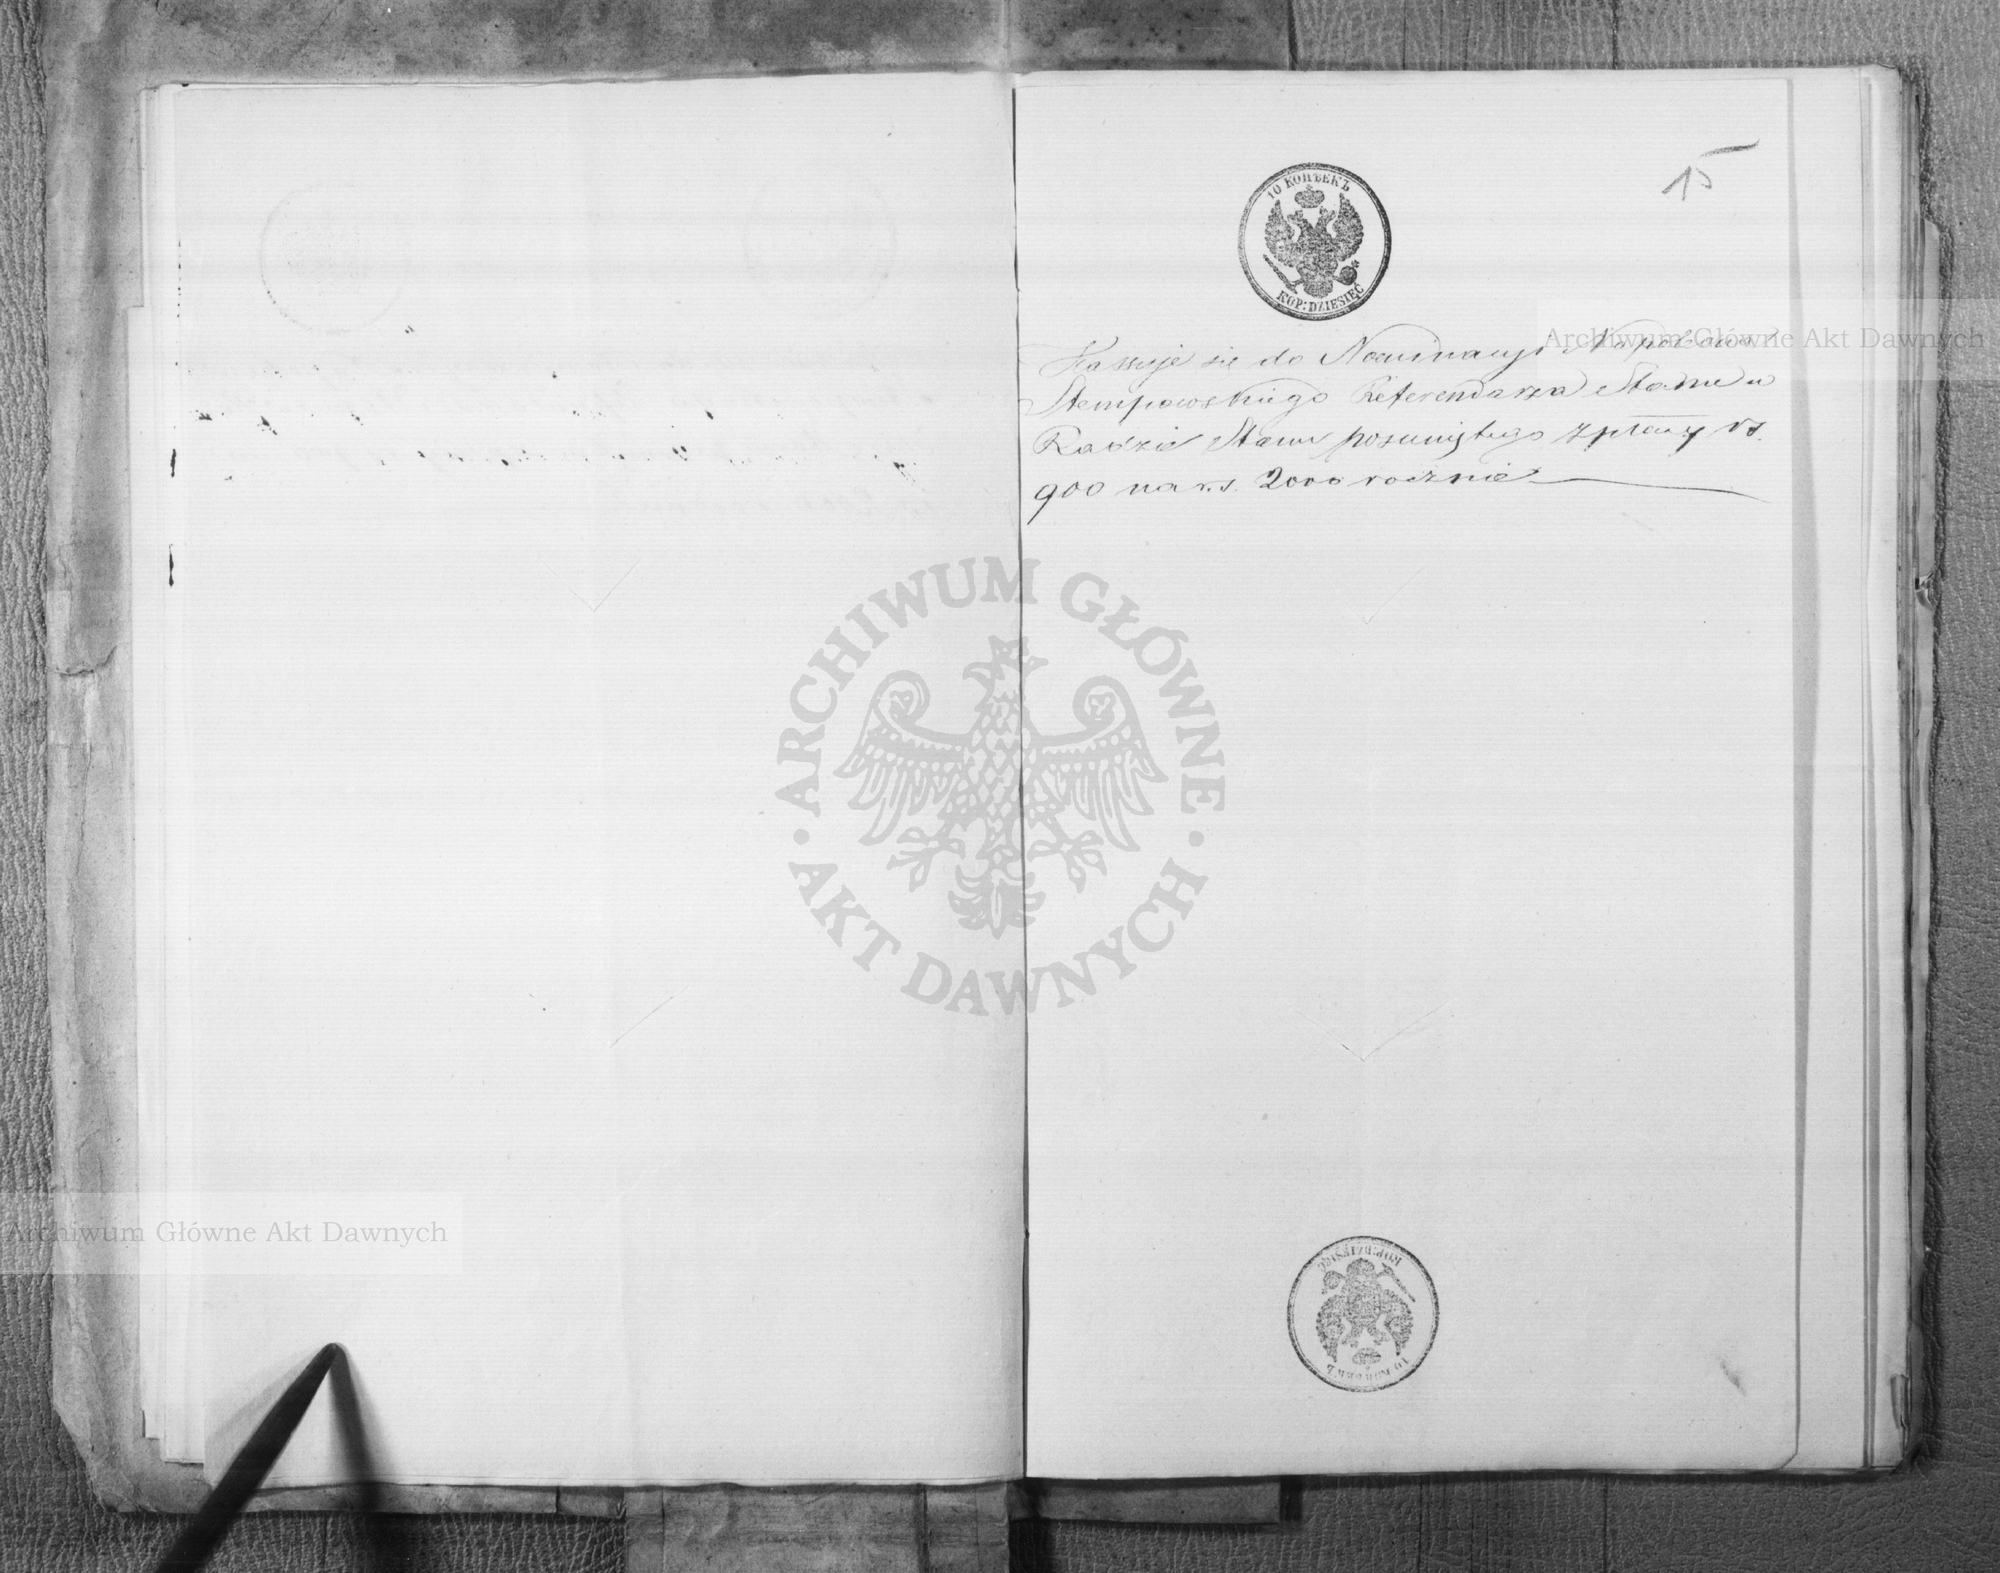 15
10 КОПѢЕКЪ
KOP: DZIESIĘĆ
Kassuje się do Nominacyi Napoleona
Stempowskiego Referendarza Stanu w
Radzie Stanu posuniętego z płacy rs.
900 na rs. 2000 rocznie
Archiwum Główne Akt Dawnych
ARCHIWUM GŁÓWNE
AKT DAWNYCH
Archiwum Główne Akt Dawnych
KOP: DZIESIĘĆ
10 КОПѢЕКЪ